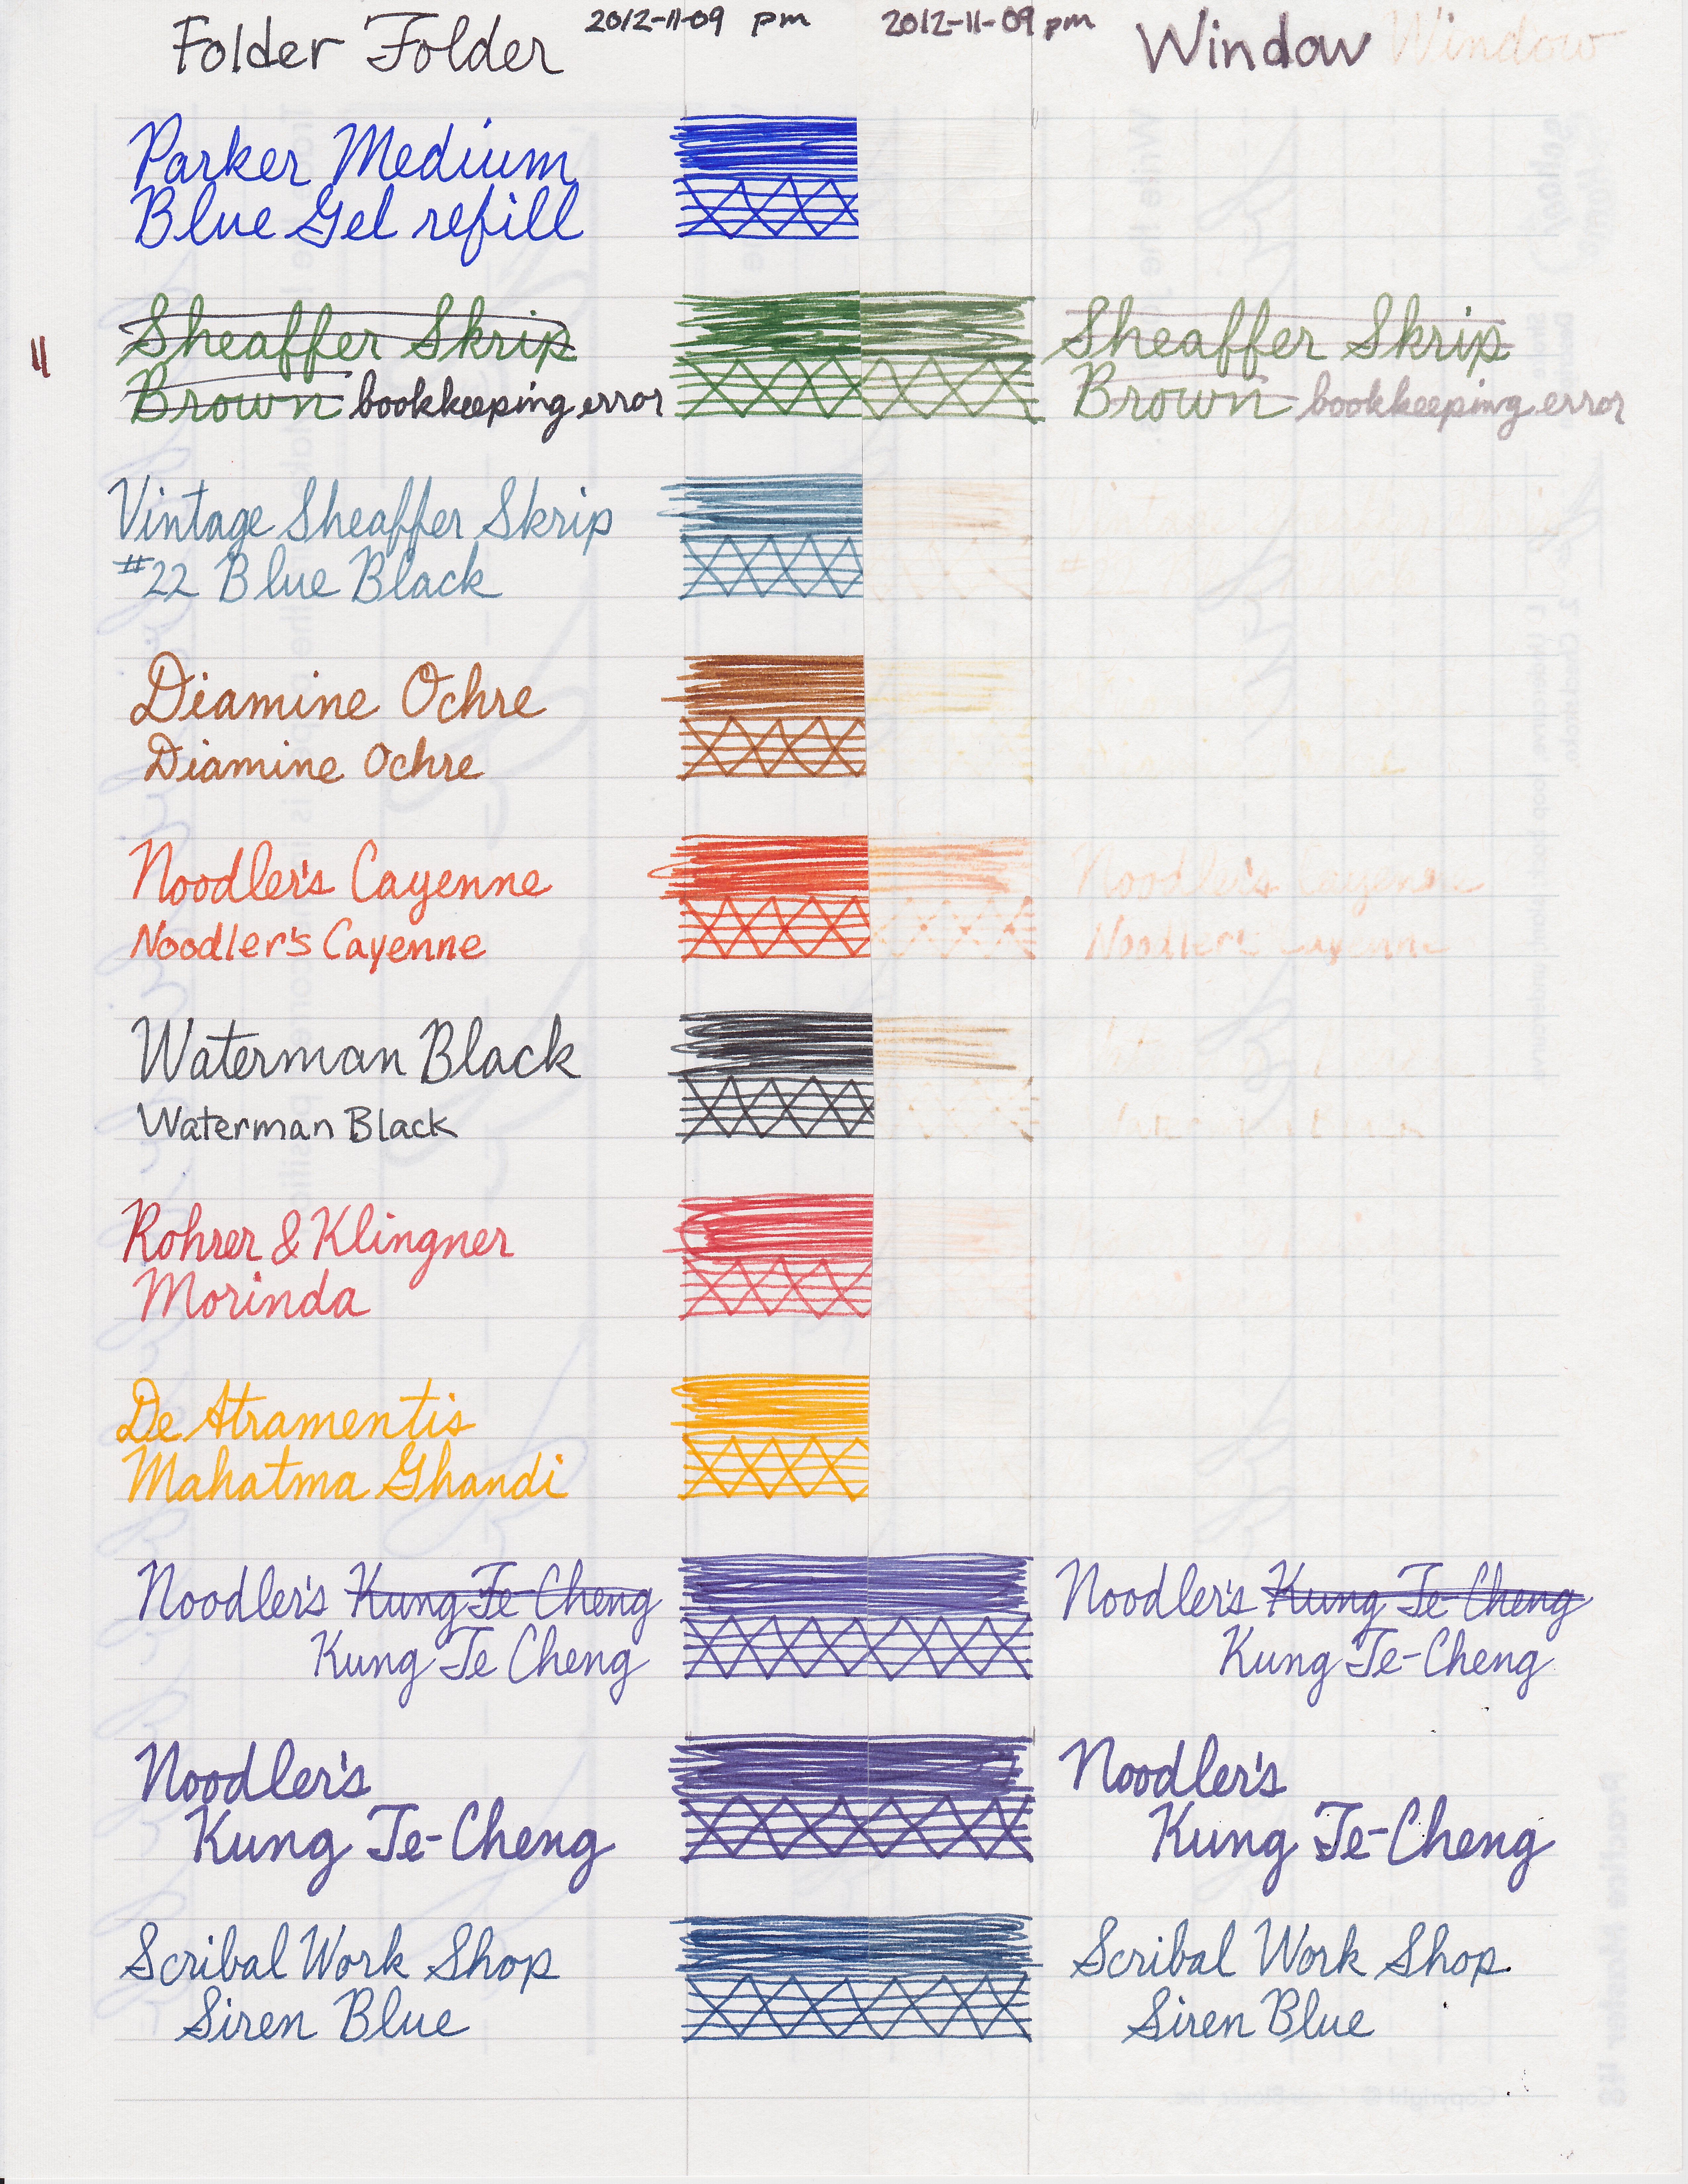 Folder Folder 2012-11-09 pm 2012-11-09 pm Window Window
Parker Medium
Blue Gel refill
Sheaffer Skrip Sheaffer Skrip
Brown bookkeeping error Brown bookkeeping error
11
Vintage Sheaffer Skrip
#22 Blue Black #
Diamine Ochre
Diamine Ochre
Noodler's Cayenne Noodler's Cayenne
Noodler's Cayenne Noodler's Cayenne
Waterman Black
Waterman Black
Rohrer & Klingner
Morinda
De Atramentis
Mahatma Ghandi
Noodler's Kung Te Cheng Noodler's Kung Te-Cheng
Kung Te Cheng Kung Te-Cheng
Noodler's Noodler's
Kung Te-Cheng Kung Te-Cheng
Scribal Work Shop Scribal Work Shop.
Siren Blue Siren Blue
Practice Master 48